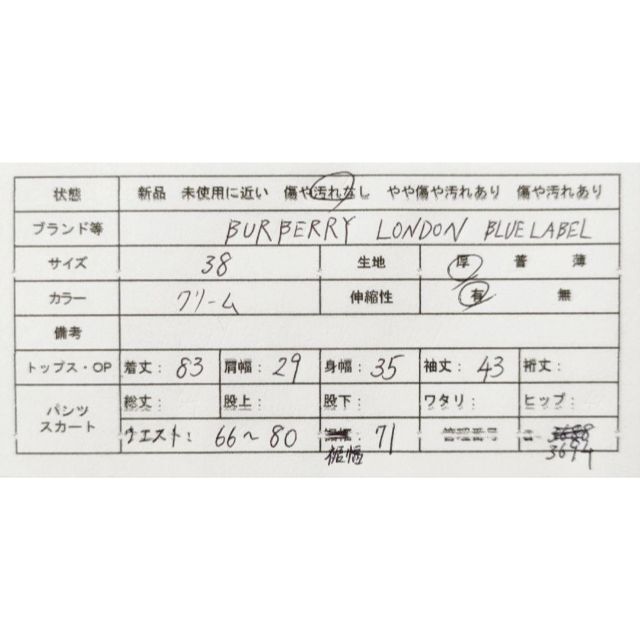 状態 新品 未使用に近い 傷や汚れなし やや傷や汚れあり 傷や汚れあり
ブランド等 BURBERRY LONDON BLUE LABEL
サイズ 38 生地 厚 普 薄
カラー クリーム 伸縮性 有 無
備考
トップス・OP 着丈: 83 肩幅: 29 身幅: 35 袖丈: 43 裄丈:
パンツ スカート 総丈: 股上: 股下: ワタリ: ヒップ:
ウエスト: 66～80 71 管理番号
裾幅 3694